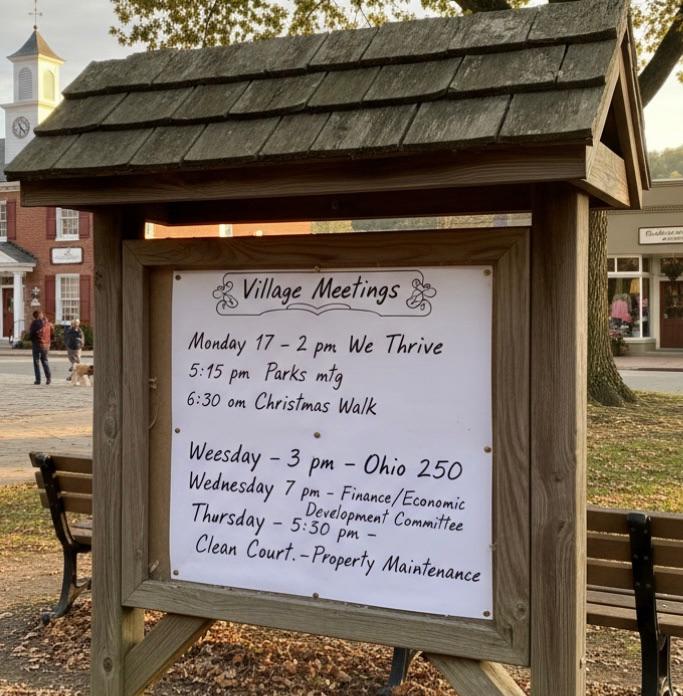 Village Meetings
Monday 17 - 2 pm We Thrive
5:15 pm Parks mtg
6:30 om Christmas Walk
Weesday - 3 pm - Ohio 250
Wednesday 7 pm - Finance/Economic
Development Committee
Thursday - 5:30 pm -
Clean Court. - Property Maintenance